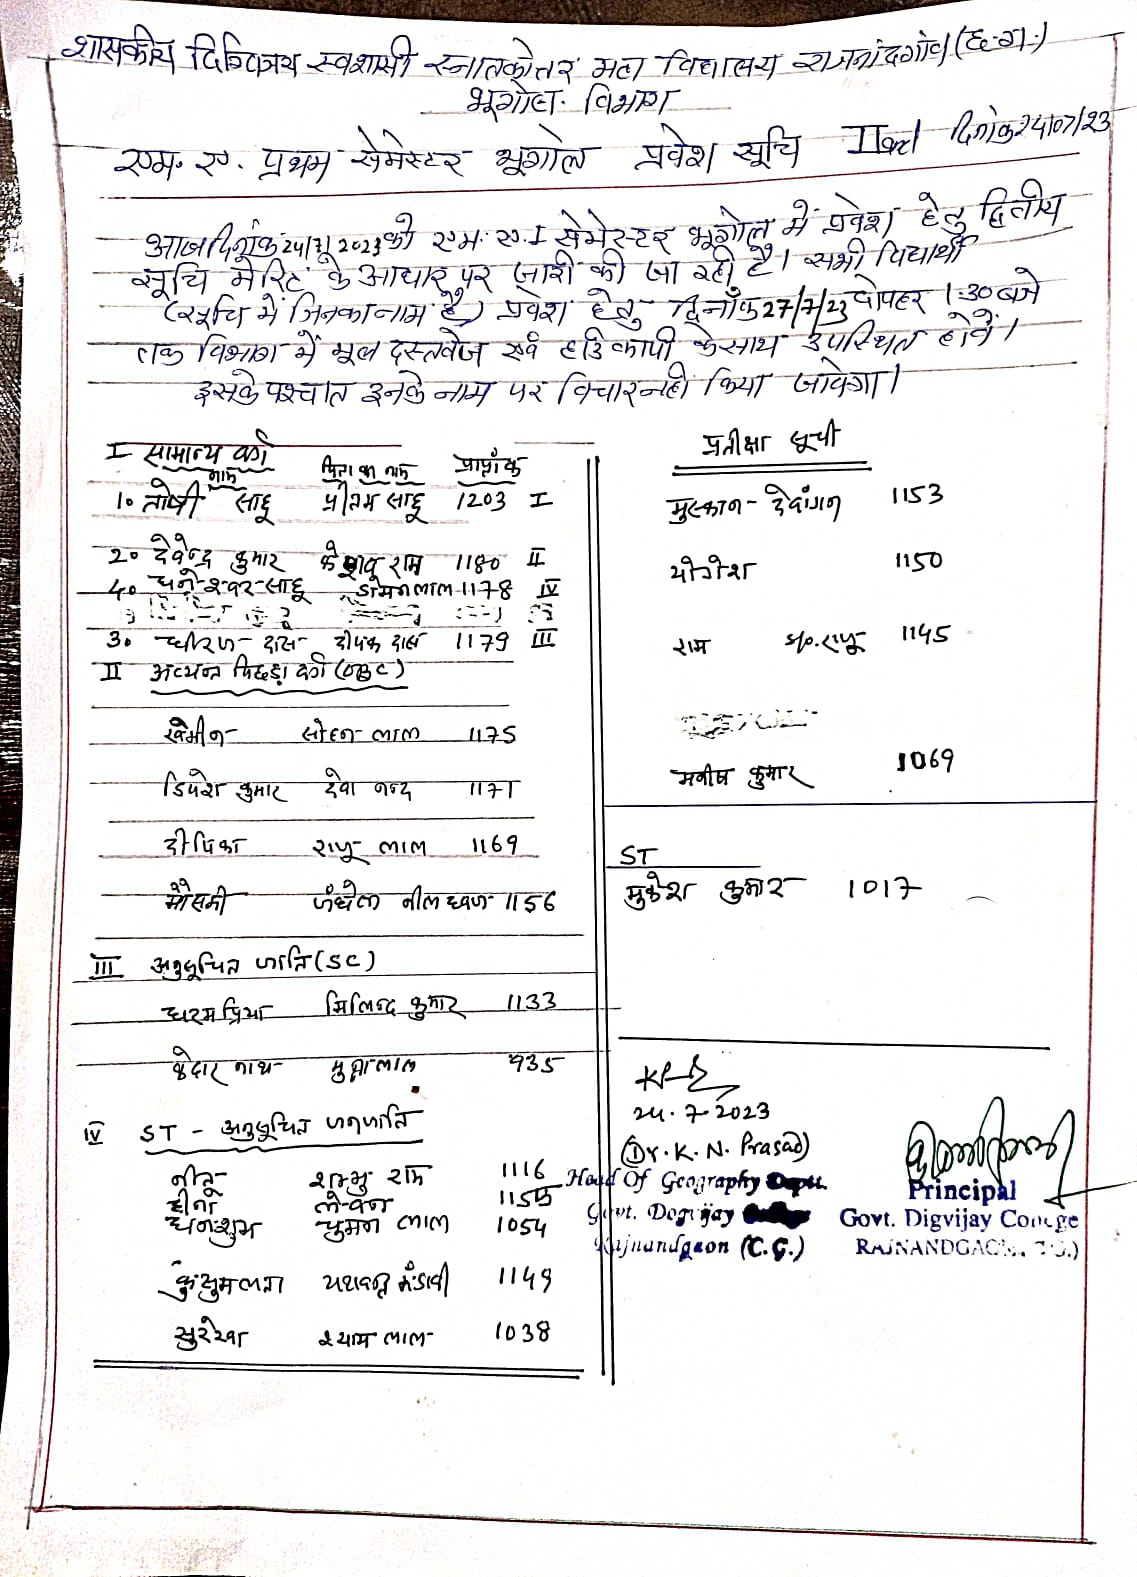 शासकीय दिग्विजय स्वशासी स्नातकोत्तर महा विद्यालय राजनांदगांव (छ.ग.)
भूगोल विभाग
एम. ए. प्रथम सेमेस्टर भूगोल प्रवेश सूचि II दिनांक 24/07/23
आज दिनांक 24/7/2023 को एम. ए. I सेमेस्टर भूगोल में प्रवेश हेतु द्वितीय
सूचि मेरिट के आधार पर जारी की जा रही है। सभी विद्यार्थी
(सूचि में जिनका नाम है) प्रवेश हेतु दिनाँक 27/7/23 दोपहर 1:30 बजे
तक विभाग में मूल दस्तवेज एवं हार्ड कापी के साथ उपस्थित होवें।
इसके पश्चात इनके नाम पर विचार नहीं किया जावेगा।
I सामान्य वर्ग
नाम पिता का नाम प्राप्तांक
1. तोषी साहू प्रीतम साहू 1203 I
2. देवेन्द्र कुमार केशव राम 1180 II
4. धनेश्वर साहू डोमनलाल 1178 IV
3. धीरज दास दीपक दास 1179 III
II अत्यन्त पिछड़ा वर्ग (OBC)
खेमीन सोहन लाल 1175
डिपेश कुमार देवा नन्द 1171
दीपिका राजू लाल 1169
मौसमी जंघेल नील ध्वज 1156
III अनुसूचित जाति (SC)
धरमप्रिया मिलिन्द कुमार 1133
केदार नाथ मुन्नालाल 935
IV ST - अनुसूचित जनजाति
नीतू शम्भु राम 1116
हीना लेखन 1155
घनशुभ चुमन लाल 1054
कुसुमलता यशवन्त मंडावी 1149
सुरेखा श्याम लाल 1038
प्रतीक्षा सूची
मुस्कान देवांगन 1153
योगेश 1150
राम S/o. राजू 1145
मनीष कुमार 1069
ST
मुकेश कुमार 1017
24.7.2023
(Dr. K. N. Prasad)
Head Of Geography Deptt.
Govt. Digvijay
Rajnandgaon (C.G.)
Principal
Govt. Digvijay College
RAJNANDGAON (C.G.)